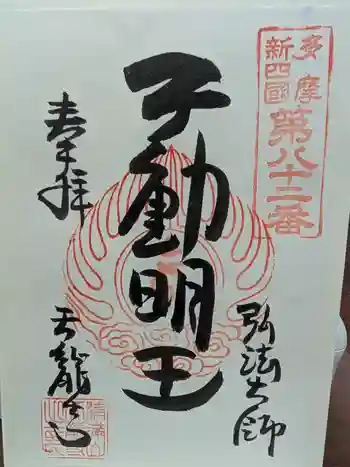 多摩
新四國
第八十二番
奉拝
不動明王
弘法大師
天龍寺